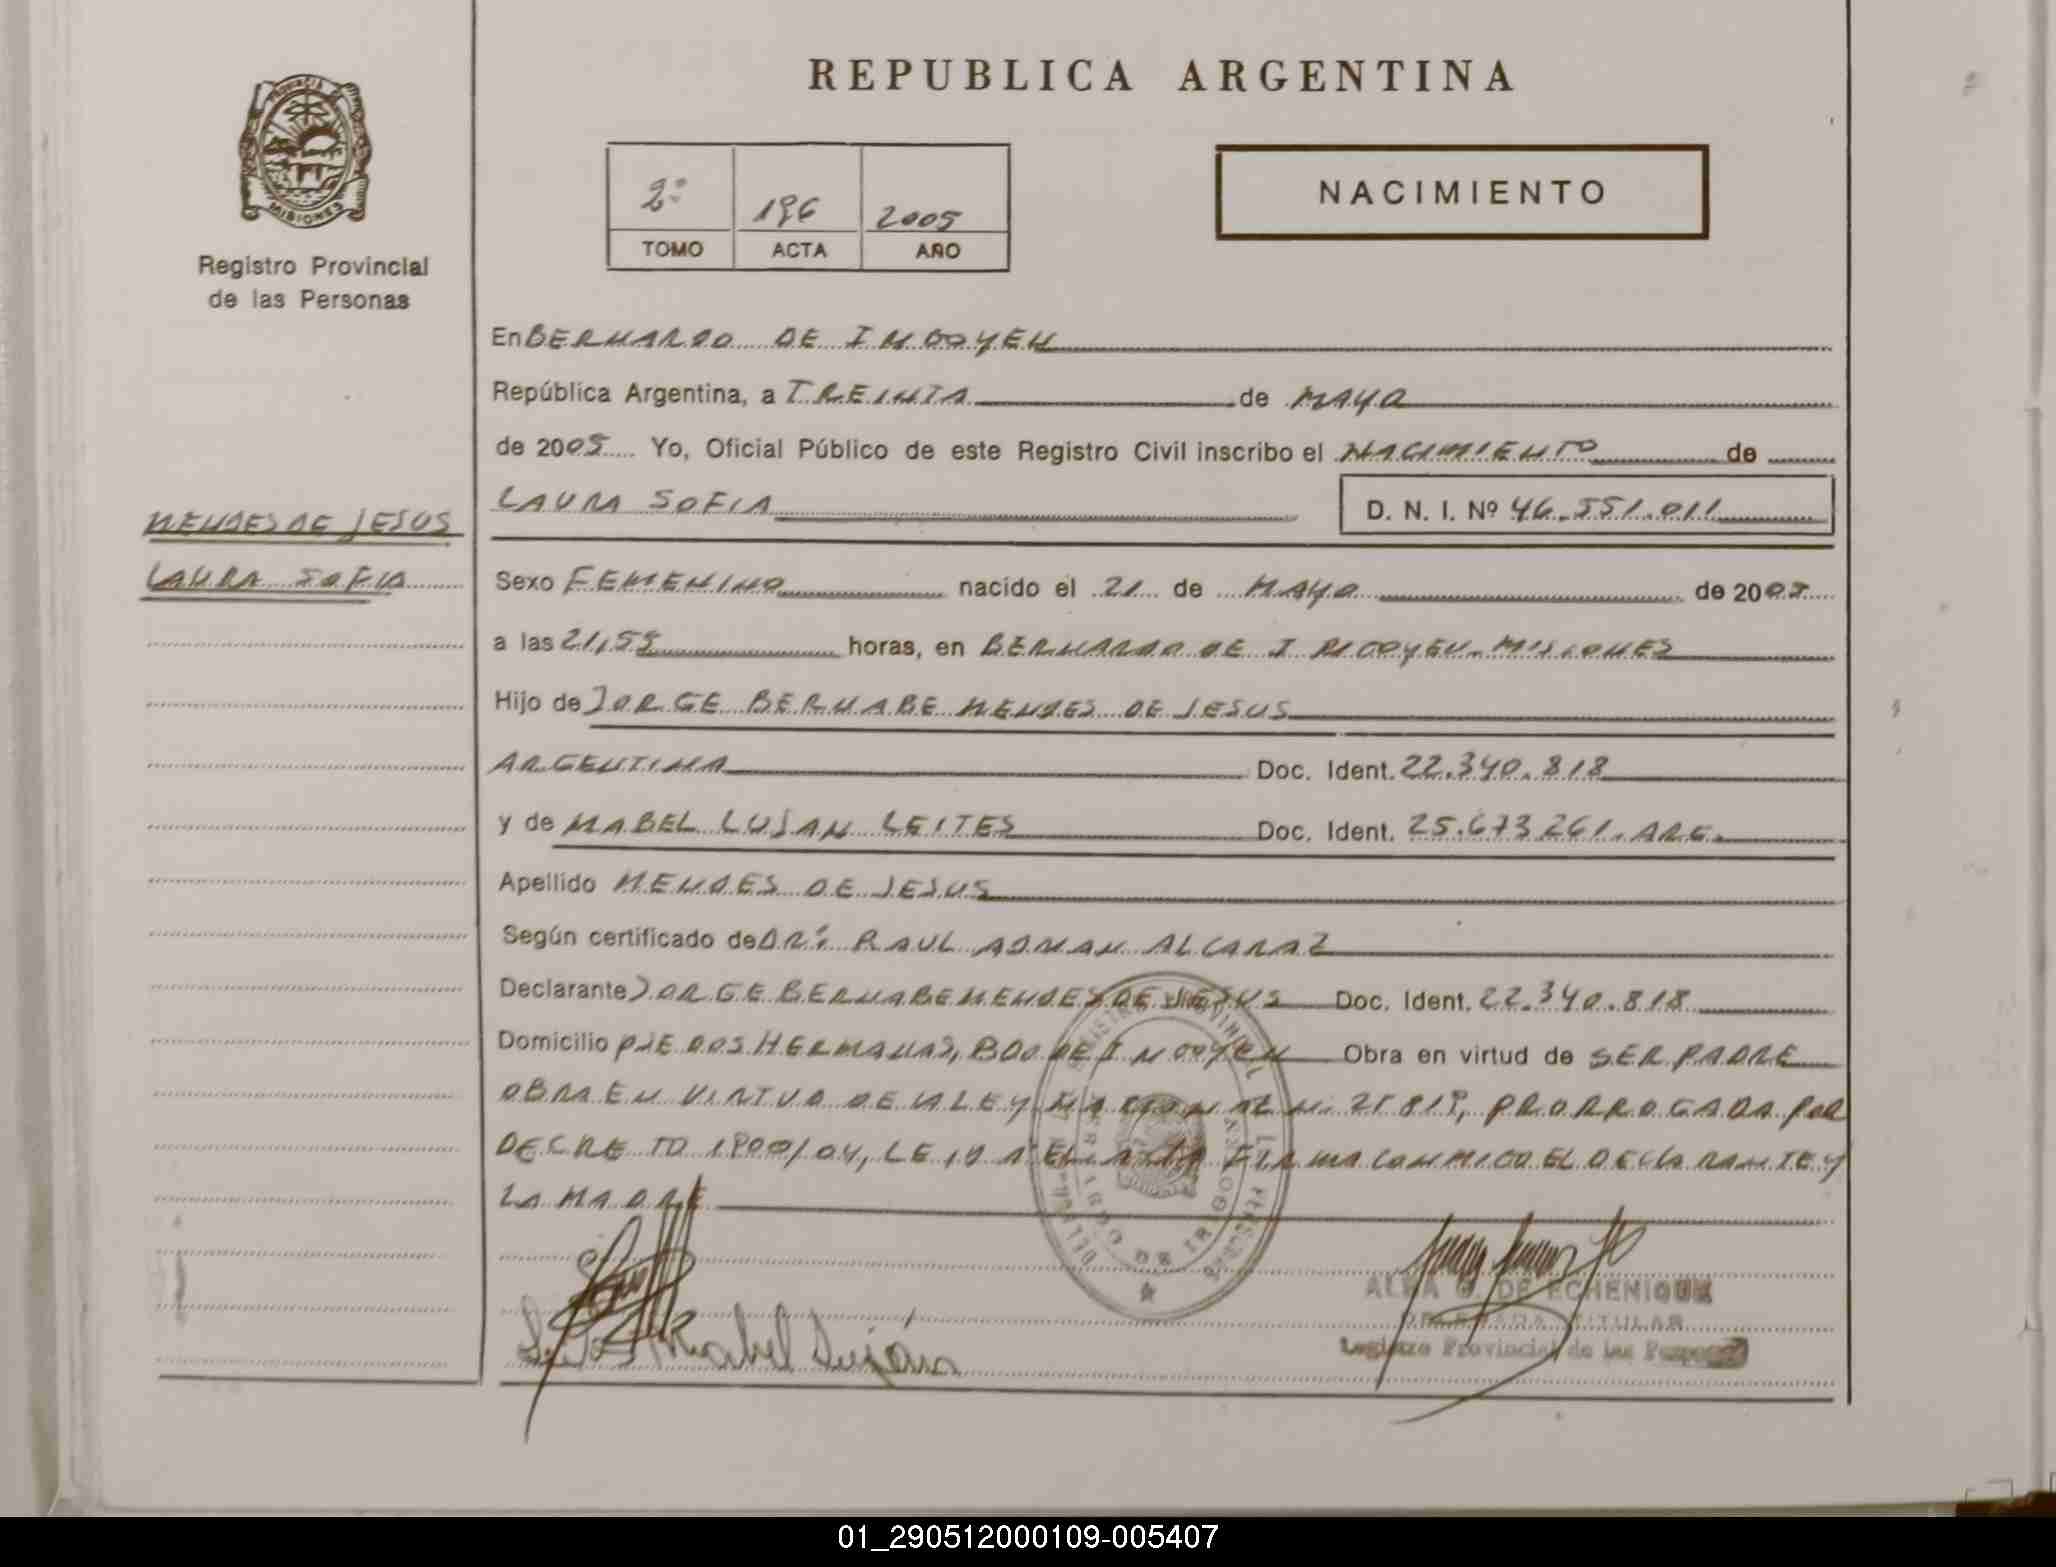 REPUBLICA ARGENTINA
PROVINCIA DE
MISIONES
Registro Provincial
de las Personas
2º 196 2005
TOMO ACTA AÑO
NACIMIENTO
En BERNARDO DE IRIGOYEN
República Argentina, a TREINTA de MAYO
de 2005 Yo, Oficial Público de este Registro Civil inscribo el NACIMIENTO de
LAURA SOFIA D. N. I. Nº 46.551.011
MENDES DE JESUS
LAURA SOFIA
Sexo FEMENINO nacido el 21 de MAYO de 2005
a las 21,55 horas, en BERNARDO DE IRIGOYEN-MISIONES
Hijo de JORGE BERNABE MENDES DE JESUS
ARGENTINA Doc. Ident. 22.340.818
y de MABEL LUJAN LEITES Doc. Ident. 25.673261.ARG.
Apellido MENDES DE JESUS
Según certificado de DR: RAUL ADNAN ALCARAZ
Declarante JORGE BERNABE MENDES DE JESUS Doc. Ident. 22.340.818
Domicilio PJE DOS HERMANAS, BDO DE IRIGOYEN Obra en virtud de SER PADRE
OBRA EN VIRTUD DE LA LEY NACIONAL Nº 25819, PRORROGADA POR
DECRETO 1900/04, LEIDA EL ACTA FIRMA CONMIGO EL DECLARANTE Y
LA MADRE
Mabel Luján
ALBA G. DE ECHENIQUE
DELEGADA TITULAR
Registro Provincial de las Personas
01_290512000109-005407